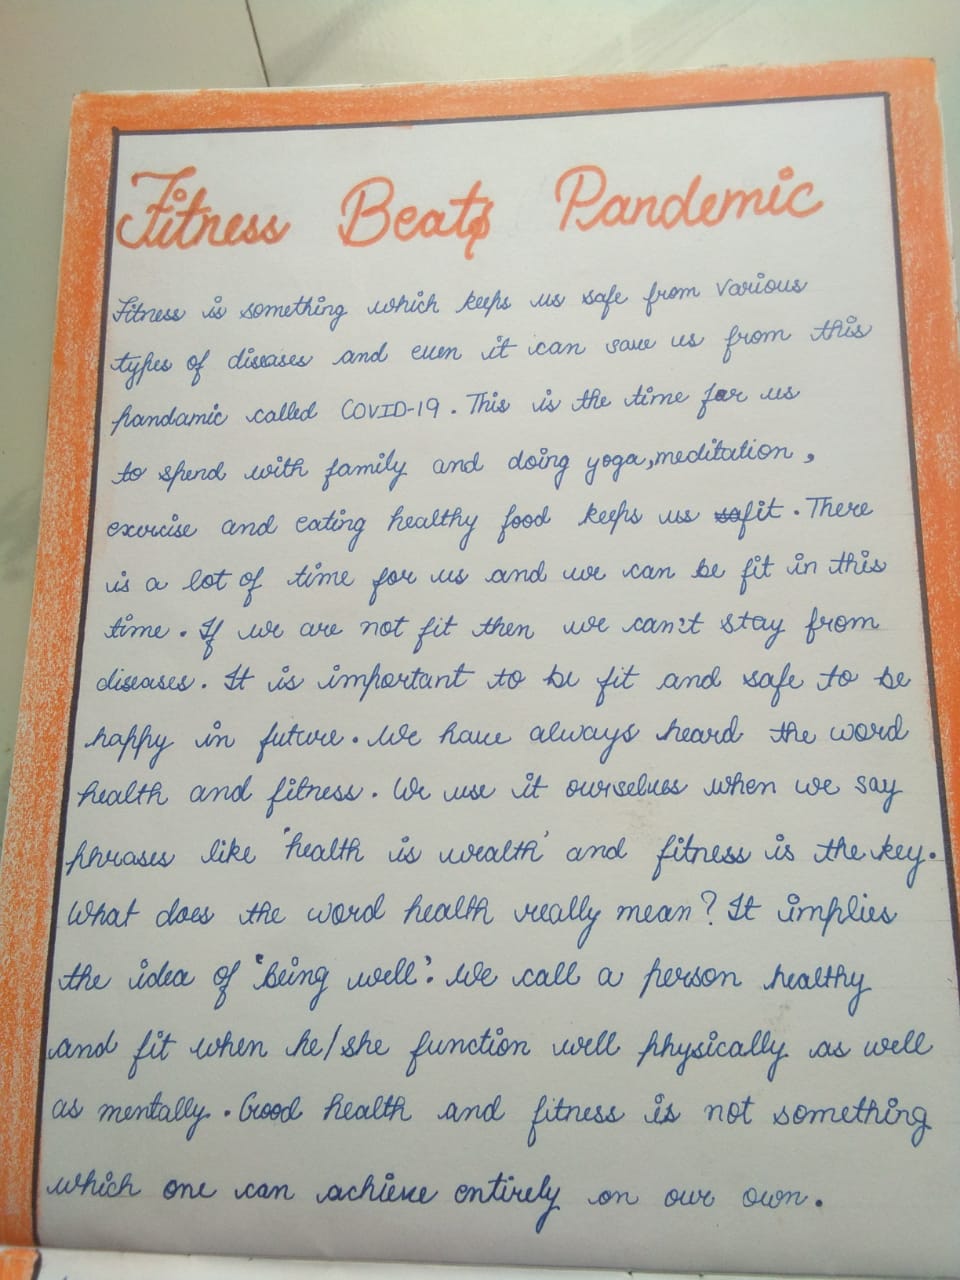 Fitness Beats Pandemic
Fitness is something which keeps us safe from various
types of diseases and even it can save us from this
pandamic called COVID-19. This is the time for us
to spend with family and doing yoga, meditation,
exercise and eating healthy food keeps us fit. There
is a lot of time for us and we can be fit in this
time. If we are not fit then we can't stay from
diseases. It is important to be fit and safe to be
happy in future. We have always heard the word
health and fitness. We use it ourselves when we say
phrases like 'health is wealth' and fitness is the key.
What does the word health really mean? It implies
the idea of 'being well'. We call a person healthy
and fit when he/she function well physically as well
as mentally. Good health and fitness is not something
which one can achieve entirely on our own.